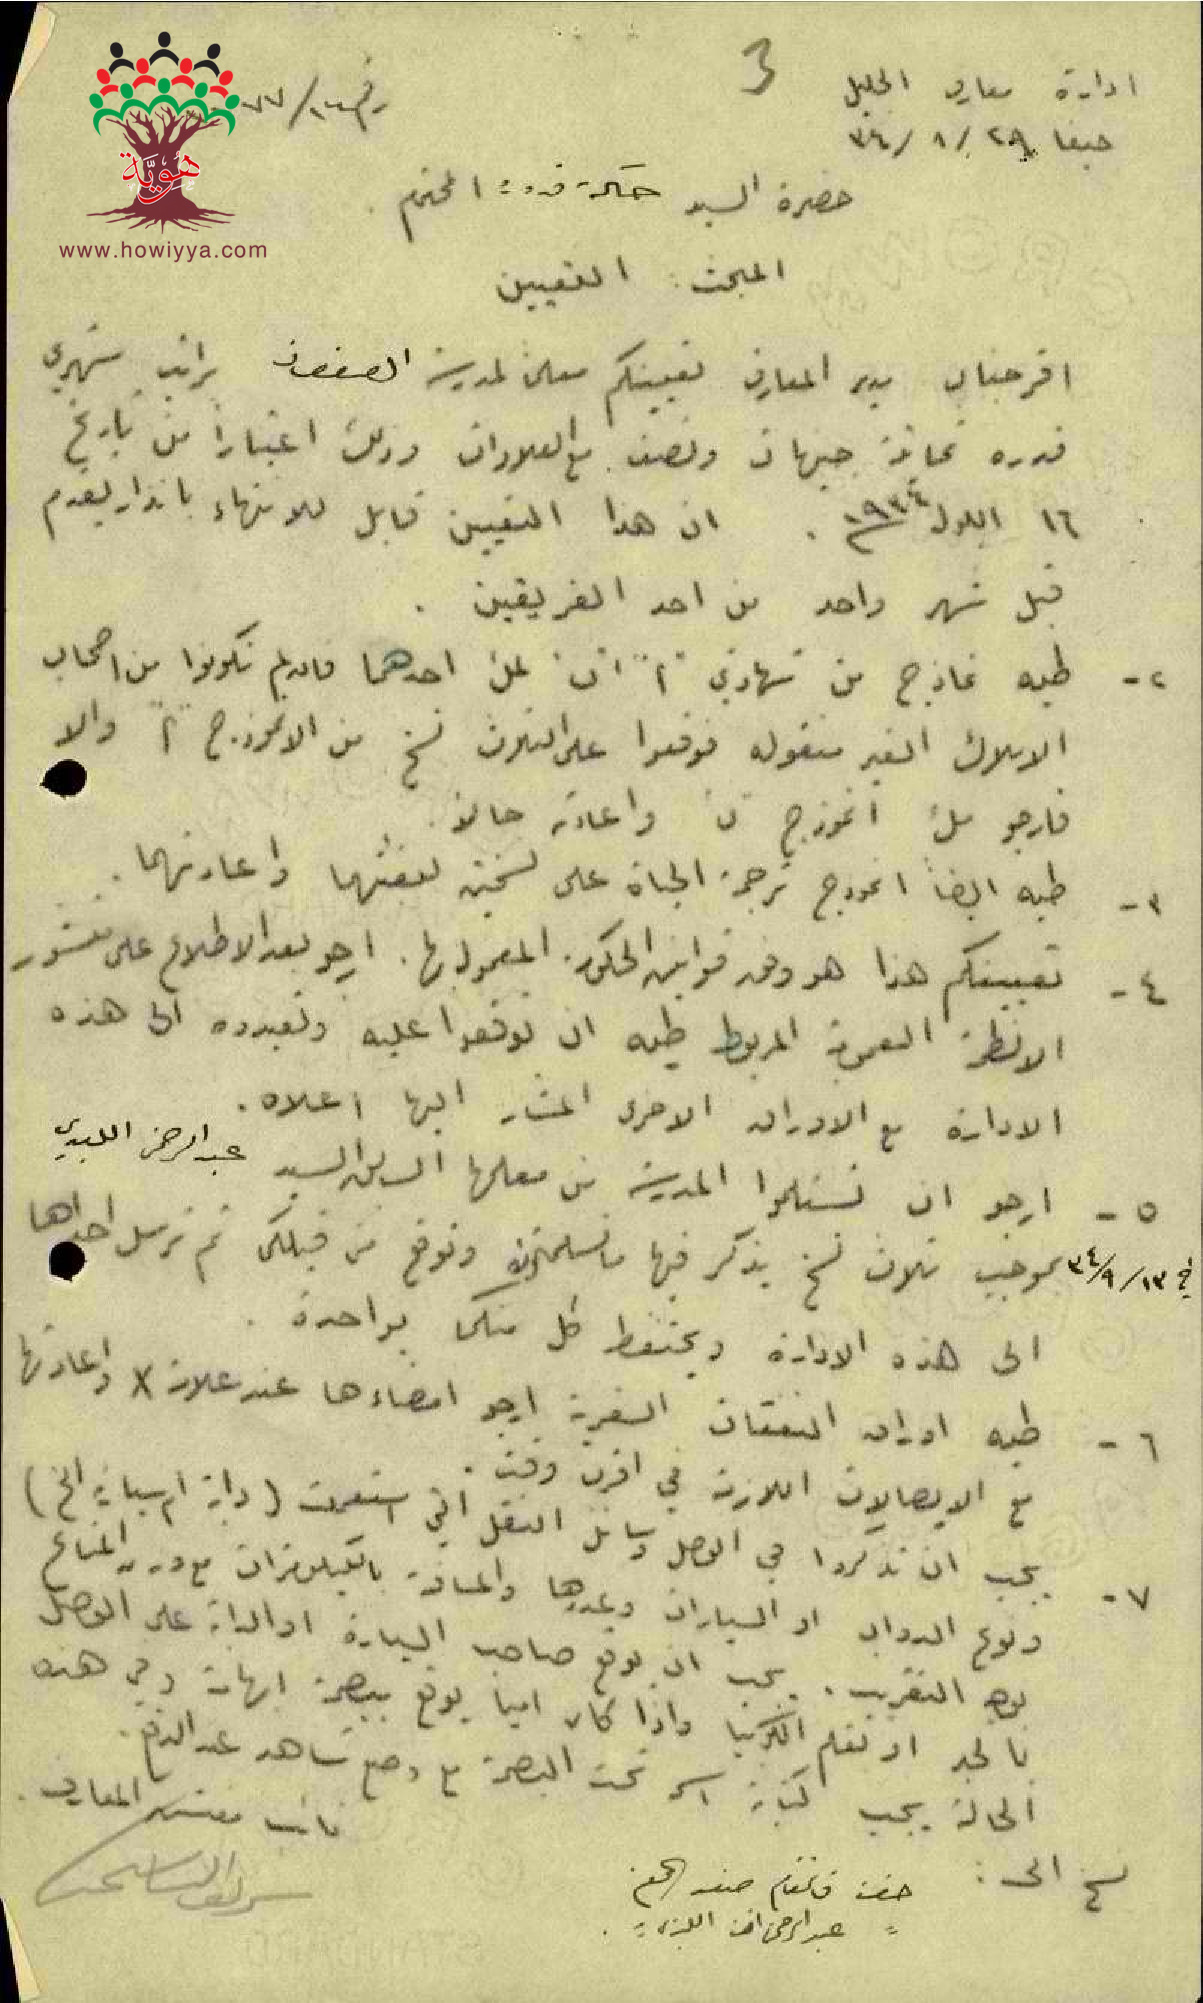 ادارة معارف الجليل
3
حيفا ٢٨/٨/٣٤
هوية
www.howiyya.com
حضرة السيد المحترم .
المبحث : التعيين
اقر جناب مدير المعارف تعيينكم معلما لمدرسة الصفصاف براتب شهري
قدره ثمانية جنيهات ونصف مع العلاوات وذلك اعتبارا من تاريخ
١٦ ايلول ١٩٣٤ . ان هذا التعيين قابل للانتهاء بانذار يقدم
قبل شهر واحد من احد الفريقين .
٢- طيه نماذج من شهادتي "أ" "ب" لملئ احدهما فان لم تكونوا من اصحاب
الاملاك الغير منقوله فوقعوا على الثلاث نسخ من الانموذج "أ" والا
فارجو ملئ انموذج "ب" واعادته حالا .
٣- طيه ايضا انموذج ترجمة الحياة على نسختين لتعبئتهما واعادتهما .
٤- تعيينكم هذا هو وفق قوانين الحكومة المعمول بها . ارجو بعد الاطلاع على منشور
الانظمة العمومية المربوط طيه ان توقعوا عليه وتعيدوه الى هذه
الادارة مع الاوراق الاخرى المشار اليها اعلاه .
٥- ارجو ان تستلموا المدرسة من معلمها السابق السيد عبد الرحمن اللبدي
في ١٣/٩/٣٤ بموجب ثلاث نسخ يذكر فيها ما تستلمونه وتوقع من قبلكما ثم ترسل احداها
الى هذه الادارة ويحتفظ كل منكما بواحدة .
٦- طيه اوراق النفقات السفرية ارجو امضاءها عند علامة X واعادتها
مع الايصالات اللازمة في اقرب وقت .
٧- يجب ان تذكروا في الوصل وسائل النقل التي استعملت (دابة ام سيارة الخ)
ونوع الدواب او السيارات وعددها والمسافة بالكيلومترات مع المبالغ
بوجه التقريب . يجب ان يوقع صاحب السيارة او الدابة على الوصل
بالحبر او بقلم الكوبيا واذا كان اميا يوقع ببصمة ابهامه وفي هذه
الحالة يجب كتابة اسمه تحت البصمة مع وضع شاهد عند الدفع .
نائب مفتش المعارف .
نسخ الى : حضرة قائمقام صفد
" عبد الرحمن افندي اللبدي .